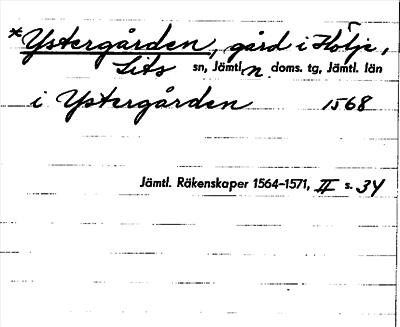 *Ystergården, gård i Hölje,
Lits sn, Jämtl. n doms. tg, Jämtl. län
i Ystergården 1568
Jämtl. Räkenskaper 1564–1571, II s. 34